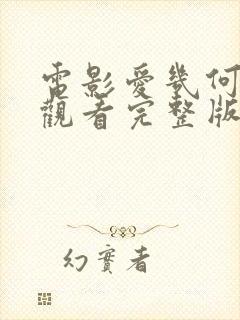 電影愛幾何
觀看完整版
幻實者